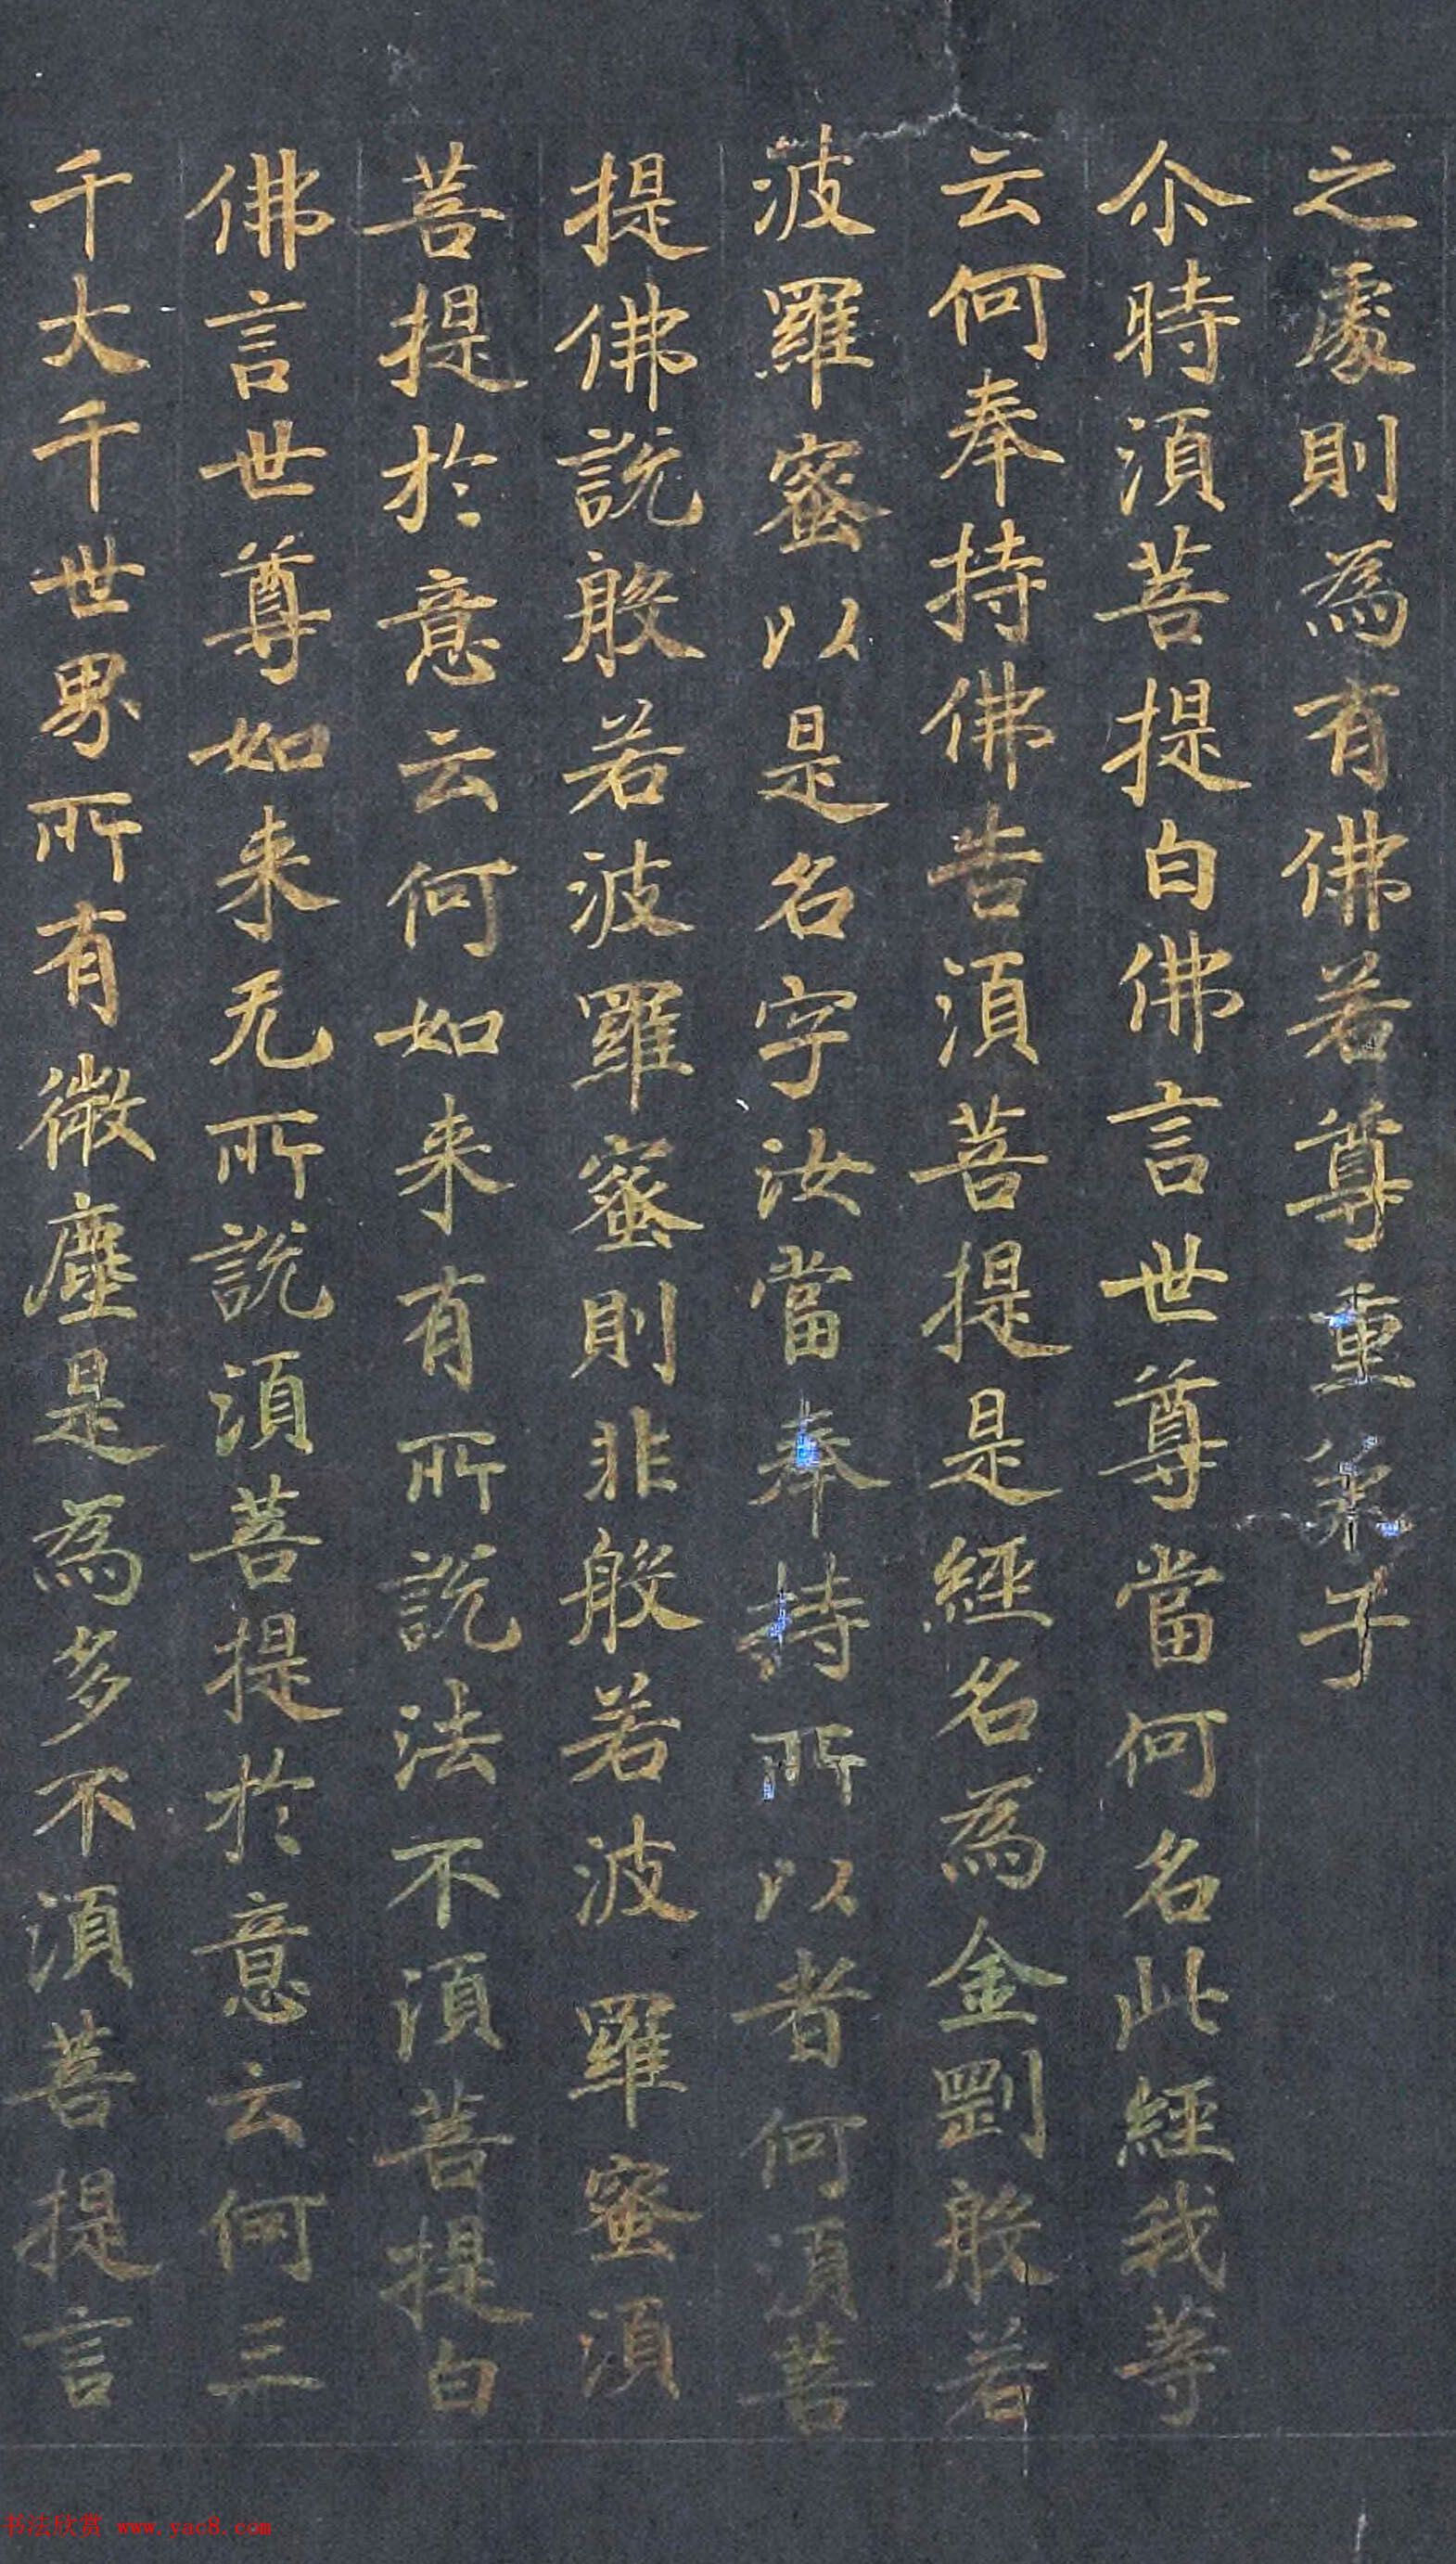 之處則為有佛若尊重弟子
尒時須菩提白佛言世尊當何名此經我等
云何奉持佛告須菩提是經名為金剛般若
波羅蜜以是名字汝當奉持所以者何須菩
提佛說般若波羅蜜則非般若波羅蜜須
菩提於意云何如来有所說法不須菩提白
佛言世尊如来无所說須菩提於意云何三
千大千世界所有微塵是為多不須菩提言
书法欣赏 www.yac8.com